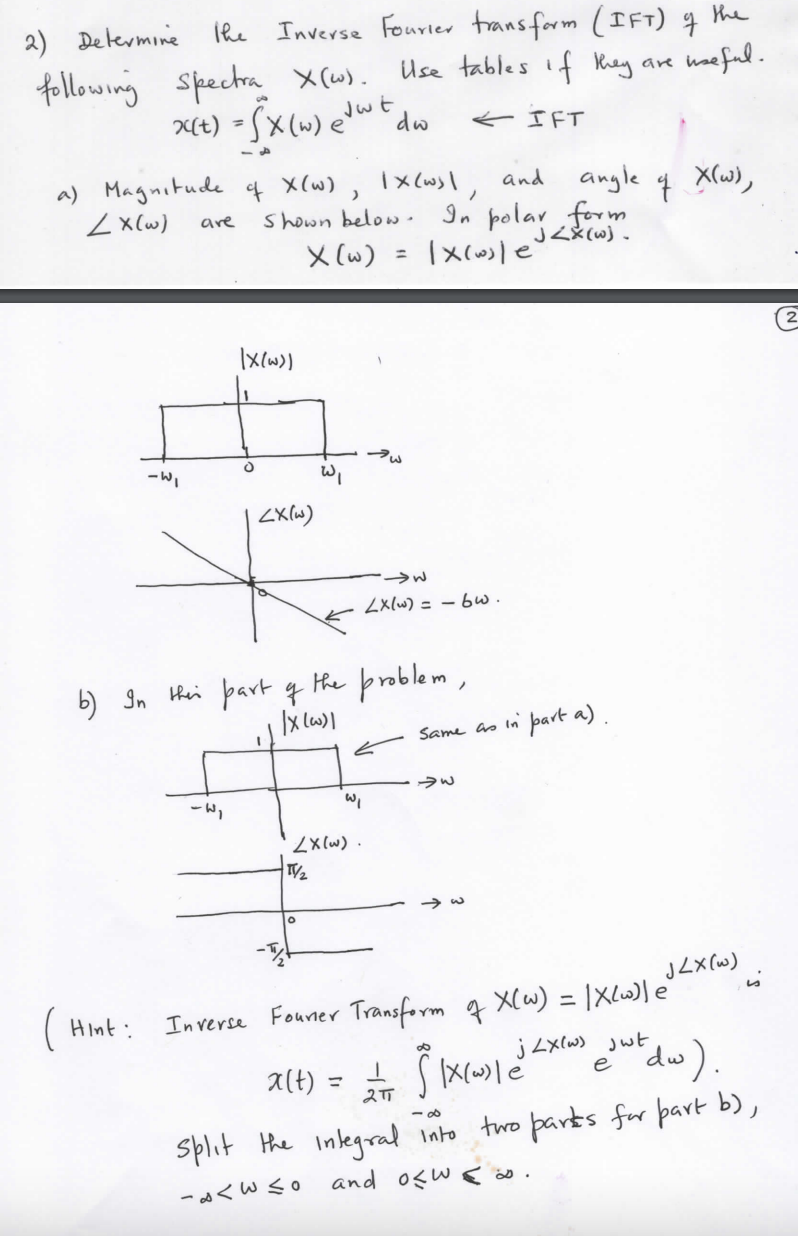 2) Determine the Inverse Fourier transform (IFT) of the
following spectra X(ω). Use tables if they are useful.
x(t) = ∫_{-∞}^{∞} X(ω) e^{jωt} dω ← IFT
a) Magnitude of X(ω), |X(ω)|, and angle of X(ω),
∠X(ω) are shown below. In polar form
X(ω) = |X(ω)| e^{j∠X(ω)}.
2
|X(ω)|
1
-ω₁ 0 ω₁ → ω
∠X(ω)
0 → ω
← ∠X(ω) = -6ω.
b) In this part of the problem,
|X(ω)|
1 ← same as in part a).
-ω₁ ω₁ → ω
∠X(ω).
π/2
0 → ω
-π/2
(Hint: Inverse Fourier Transform of X(ω) = |X(ω)| e^{j∠X(ω)} is
x(t) = 1/2π ∫_{-∞}^{∞} |X(ω)| e^{j∠X(ω)} e^{jωt} dω).
Split the integral into two parts for part b),
-∞ < ω ≤ 0 and 0 ≤ ω < ∞.